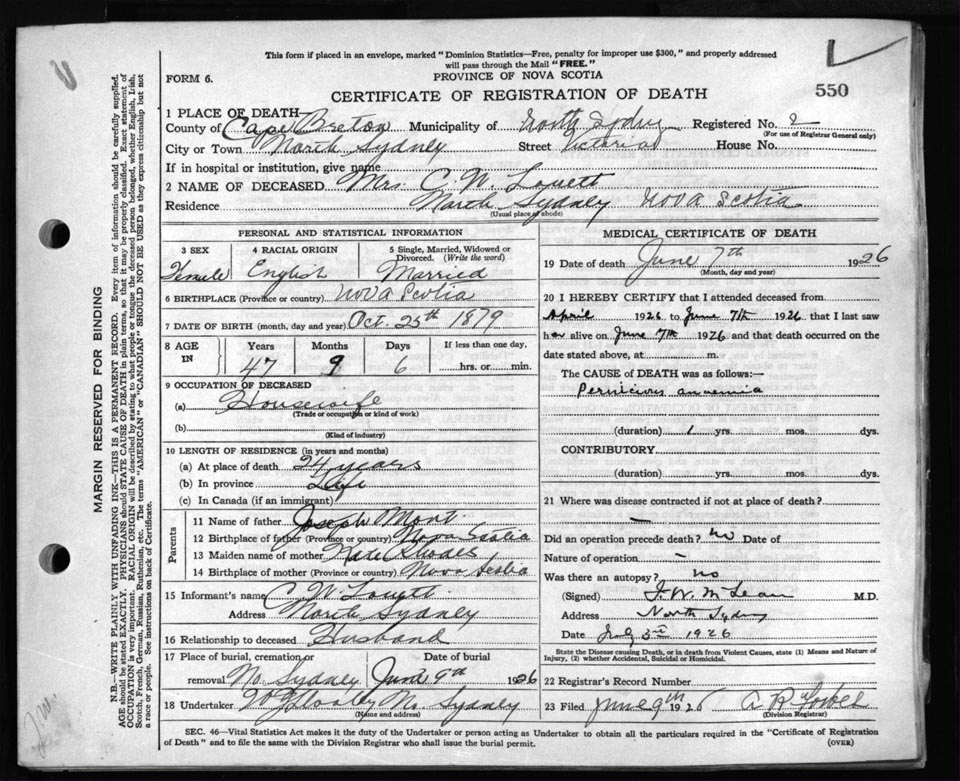 This form if placed in an envelope, marked "Dominion Statistics—Free, penalty for improper use $300," and properly addressed
will pass through the Mail "FREE."
FORM 6.
PROVINCE OF NOVA SCOTIA
CERTIFICATE OF REGISTRATION OF DEATH
550
1 PLACE OF DEATH
County of Cape Breton Municipality of North Sydney Registered No. 2
(For use of Registrar General only)
City or Town North Sydney Street Victoria House No.
If in hospital or institution, give name
2 NAME OF DECEASED Mrs. C. W. Lovett
Residence North Sydney Nova Scotia
(Usual place of abode)
PERSONAL AND STATISTICAL INFORMATION
3 SEX 4 RACIAL ORIGIN 5 Single, Married, Widowed or
Divorced. (Write the word)
Female English Married
6 BIRTHPLACE (Province or country) Nova Scotia
7 DATE OF BIRTH (month, day and year) Oct. 25th 1879
8 AGE IN Years Months Days If less than one day,
47 9 6 hrs. or min.
9 OCCUPATION OF DECEASED
(a) Housewife
(Trade or occupation or kind of work)
(b)
(Kind of industry)
10 LENGTH OF RESIDENCE (in years and months)
(a) At place of death 24 years
(b) In province Life
(c) In Canada (if an immigrant)
Parents
11 Name of father Joseph Mont
12 Birthplace of father (Province or country) Nova Scotia
13 Maiden name of mother Kate Rhodes
14 Birthplace of mother (Province or country) Nova Scotia
15 Informant's name C W Lovett
Address North Sydney
16 Relationship to deceased Husband
17 Place of burial, cremation or Date of burial
removal No. Sydney June 9th 1926
18 Undertaker No. Sydney
(Name and address)
MEDICAL CERTIFICATE OF DEATH
19 Date of death June 7th 1926
(Month, day and year)
20 I HEREBY CERTIFY that I attended deceased from
April 1926 to June 7th 1926 that I last saw
her alive on June 7th 1926 and that death occurred on the
date stated above, at m.
The CAUSE of DEATH was as follows:—
Pernicious anaemia
(duration) 1 yrs. mos. dys.
CONTRIBUTORY
(duration) yrs. mos. dys.
21 Where was disease contracted if not at place of death?
—
Did an operation precede death? no Date of
Nature of operation —
Was there an autopsy? no
(Signed) J. W. McLean M.D.
Address North Sydney
Date July 3rd 1926
State the Disease causing Death, or in death from Violent Causes, state (1) Means and Nature of
Injury, (2) whether Accidental, Suicidal or Homicidal.
22 Registrar's Record Number
23 Filed June 9th 1926 A R
(Division Registrar)
SEC. 46—Vital Statistics Act makes it the duty of the Undertaker or person acting as Undertaker to obtain all the particulars required in the "Certificate of Registration
of Death" and to file the same with the Division Registrar who shall issue the burial permit.
(OVER)
MARGIN RESERVED FOR BINDING
N.B.—WRITE PLAINLY WITH UNFADING INK—THIS IS A PERMANENT RECORD. Every item of information should be carefully supplied.
AGE should be stated EXACTLY. PHYSICIANS should STATE CAUSE OF DEATH in plain terms, so that it may be properly classified. Exact statement of
OCCUPATION is very important. RACIAL ORIGIN will be described by stating to what people or tongue the deceased person belonged, whether English, Irish,
Scotch, French, German, Russian, Ruthenian, etc. The terms "AMERICAN" or "CANADIAN" SHOULD NOT BE USED as they express citizenship but not
a race or people. See instructions on back of Certificate.